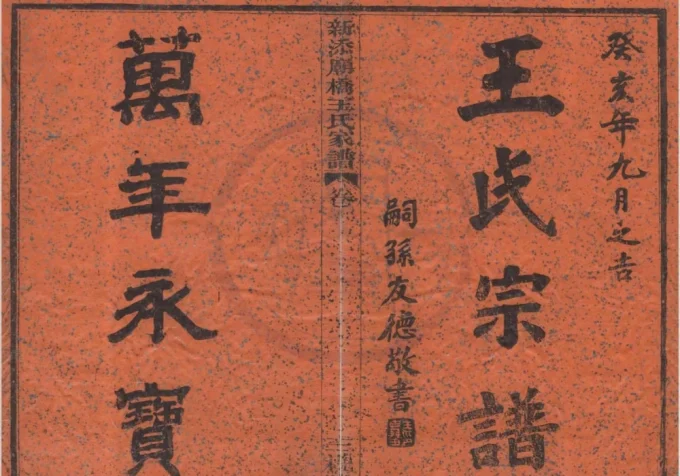 癸亥年九月之吉
王氏宗譜
嗣孫友德敬書
新漆廟橋王氏家譜 卷
萬年永寶